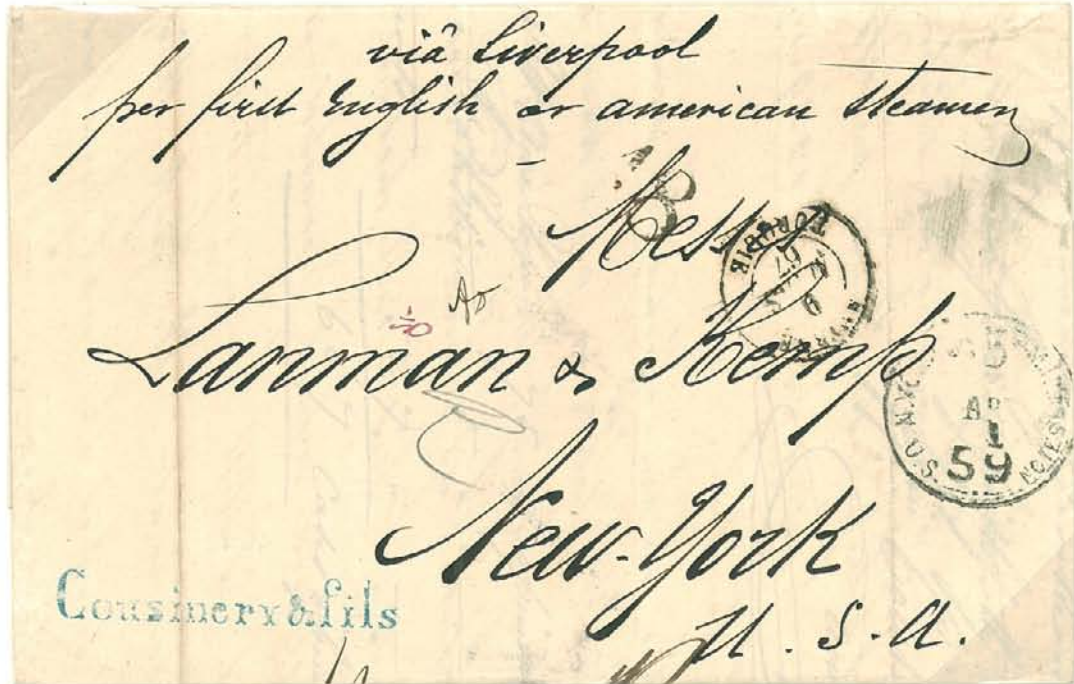 viâ Liverpool
per first English or american Steamer
Mess
Lanman & Kemp
New-York
U.S.A.
Cousinery & fils
AP
1
59